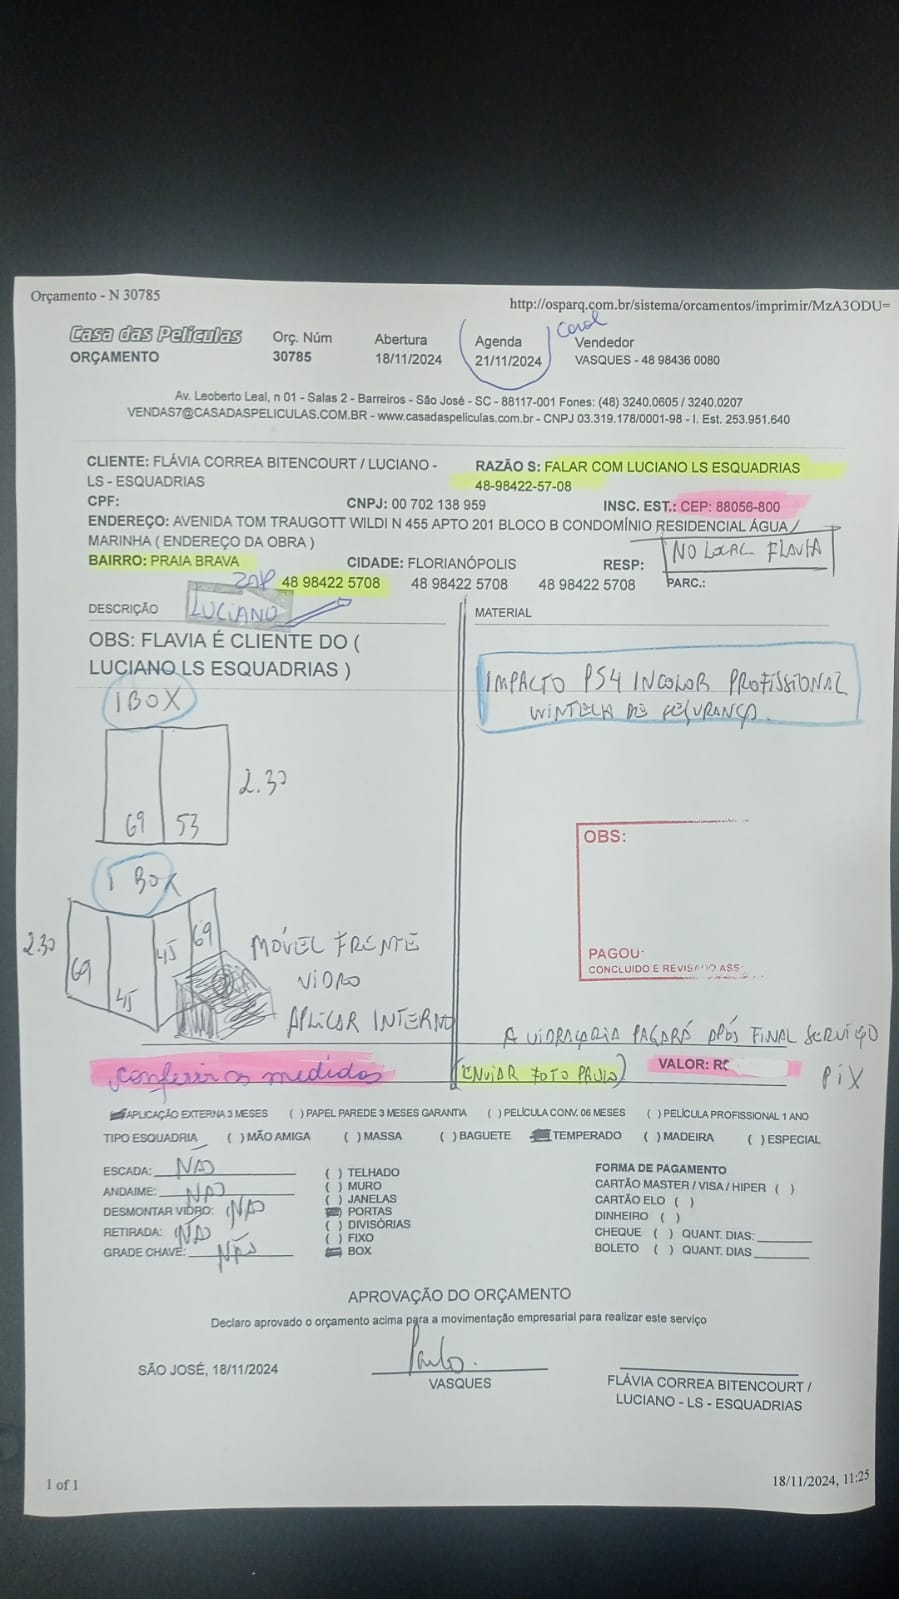 Orçamento - N 30785
http://osparq.com.br/sistema/orcamentos/imprimir/MzA3ODU=
Casa das Películas
ORÇAMENTO
Orç. Núm
30785
Abertura
18/11/2024
Agenda
21/11/2024
Carol
Vendedor
VASQUES - 48 98436 0080
Av. Leoberto Leal, n 01 - Salas 2 - Barreiros - São José - SC - 88117-001 Fones: (48) 3240.0605 / 3240.0207
VENDAS7@CASADASPELICULAS.COM.BR - www.casadaspeliculas.com.br - CNPJ 03.319.178/0001-98 - I. Est. 253.951.640
CLIENTE: FLÁVIA CORREA BITENCOURT / LUCIANO -
LS - ESQUADRIAS
RAZÃO S: FALAR COM LUCIANO LS ESQUADRIAS
48-98422-57-08
CPF:
CNPJ: 00 702 138 959
INSC. EST.: CEP: 88056-800
ENDEREÇO: AVENIDA TOM TRAUGOTT WILDI N 455 APTO 201 BLOCO B CONDOMÍNIO RESIDENCIAL ÁGUA
MARINHA ( ENDEREÇO DA OBRA )
BAIRRO: PRAIA BRAVA
CIDADE: FLORIANÓPOLIS
RESP:
NO LOCAL FLAVIA
ZAP 48 98422 5708
48 98422 5708
48 98422 5708
PARC.:
DESCRIÇÃO
LUCIANO
MATERIAL
OBS: FLAVIA É CLIENTE DO (
LUCIANO LS ESQUADRIAS )
1 BOX
69 53
2.30
1 BOX
2.30
69
45
45
69
MÓVEL FRENTE
VIDRO
APLICAR INTERNO
IMPACTO PS4 INCOLOR PROFISSIONAL
WINTECH DE SEGURANÇA.
OBS:
PAGOU:
CONCLUIDO E REVISADO ASS:
A VIDRAÇARIA PAGARÁ APÓS FINAL SERVIÇO
Conferir as medidas
(ENVIAR FOTO PAULO)
VALOR: R$
PIX
APLICAÇÃO EXTERNA 3 MESES ( ) PAPEL PAREDE 3 MESES GARANTIA ( ) PELÍCULA CONV. 06 MESES ( ) PELÍCULA PROFISSIONAL 1 ANO
TIPO ESQUADRIA ( ) MÃO AMIGA ( ) MASSA ( ) BAGUETE TEMPERADO ( ) MADEIRA ( ) ESPECIAL
ESCADA: NÃO
ANDAIME: NÃO
DESMONTAR VIDRO: NÃO
RETIRADA: NÃO
GRADE CHAVE: NÃO
( ) TELHADO
( ) MURO
( ) JANELAS
PORTAS
( ) DIVISÓRIAS
( ) FIXO
BOX
FORMA DE PAGAMENTO
CARTÃO MASTER / VISA / HIPER ( )
CARTÃO ELO ( )
DINHEIRO ( )
CHEQUE ( ) QUANT. DIAS:
BOLETO ( ) QUANT. DIAS
APROVAÇÃO DO ORÇAMENTO
Declaro aprovado o orçamento acima para a movimentação empresarial para realizar este serviço
SÃO JOSÉ, 18/11/2024
Paulo.
VASQUES
FLÁVIA CORREA BITENCOURT /
LUCIANO - LS - ESQUADRIAS
1 of 1
18/11/2024, 11:25